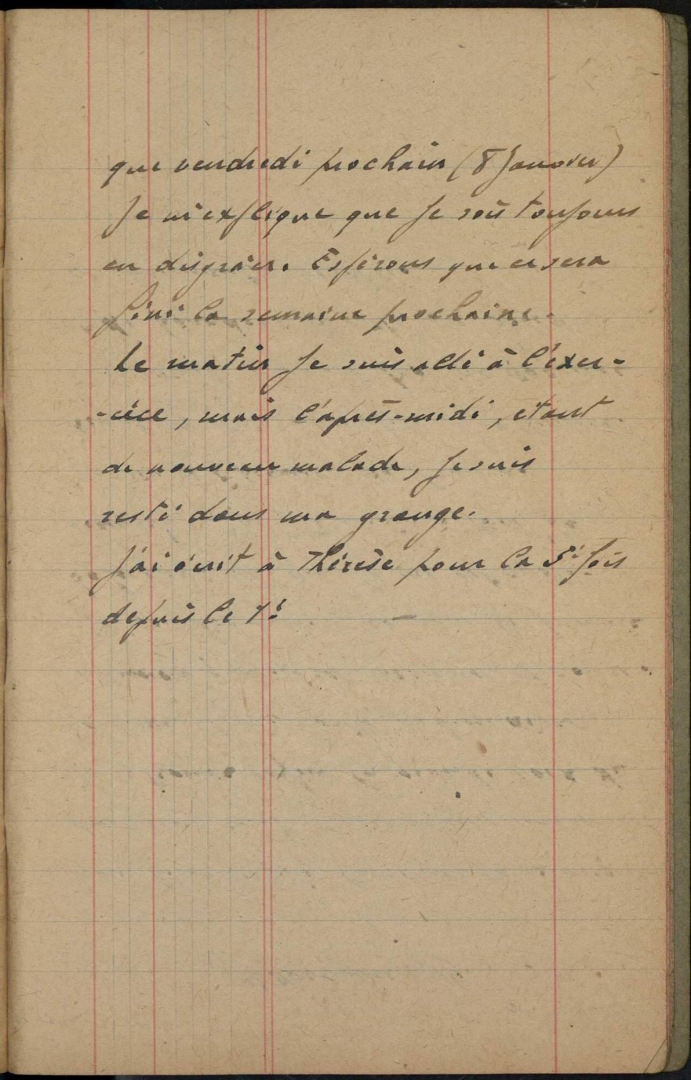 que vendredi prochain (8 Janvier)
Je m'explique que je sois toujours
en disgrâce. Espérons que ce sera
fini la semaine prochaine.
Le matin je suis allé à l'exer-
-cice, mais l'après-midi, étant
de nouveau malade, je suis
resté dans ma grange.
J'ai écrit à Thérèse pour la 5e fois
depuis le 1r